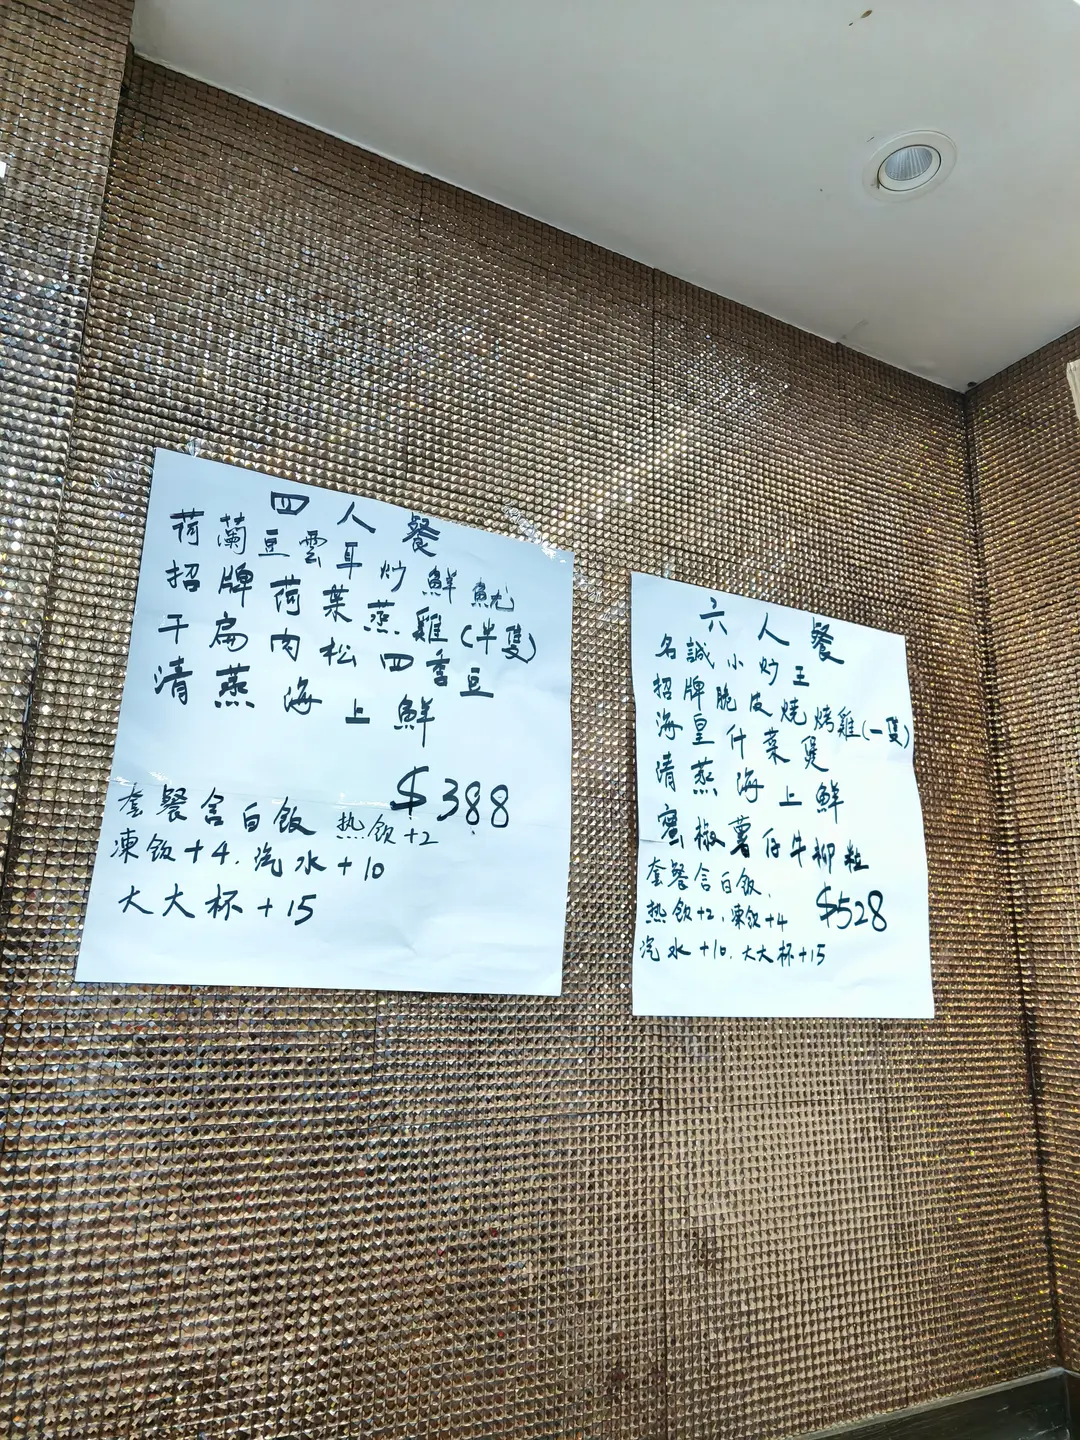 四人餐
荷蘭豆雲耳炒鮮魷
招牌荷葉蒸雞(半隻)
干扁肉松四季豆
清蒸海上鮮
$388
套餐含白飯 热飲+2
凍飲+4.汽水+10
大大杯+15
六人餐
名誠小炒王
招牌脆皮燒烤雞(一隻)
海皇什菜煲
清蒸海上鮮
蜜椒薯仔牛柳粒
套餐含白飯.
$528
热飲+2.凍飲+4
汽水+10.大大杯+15